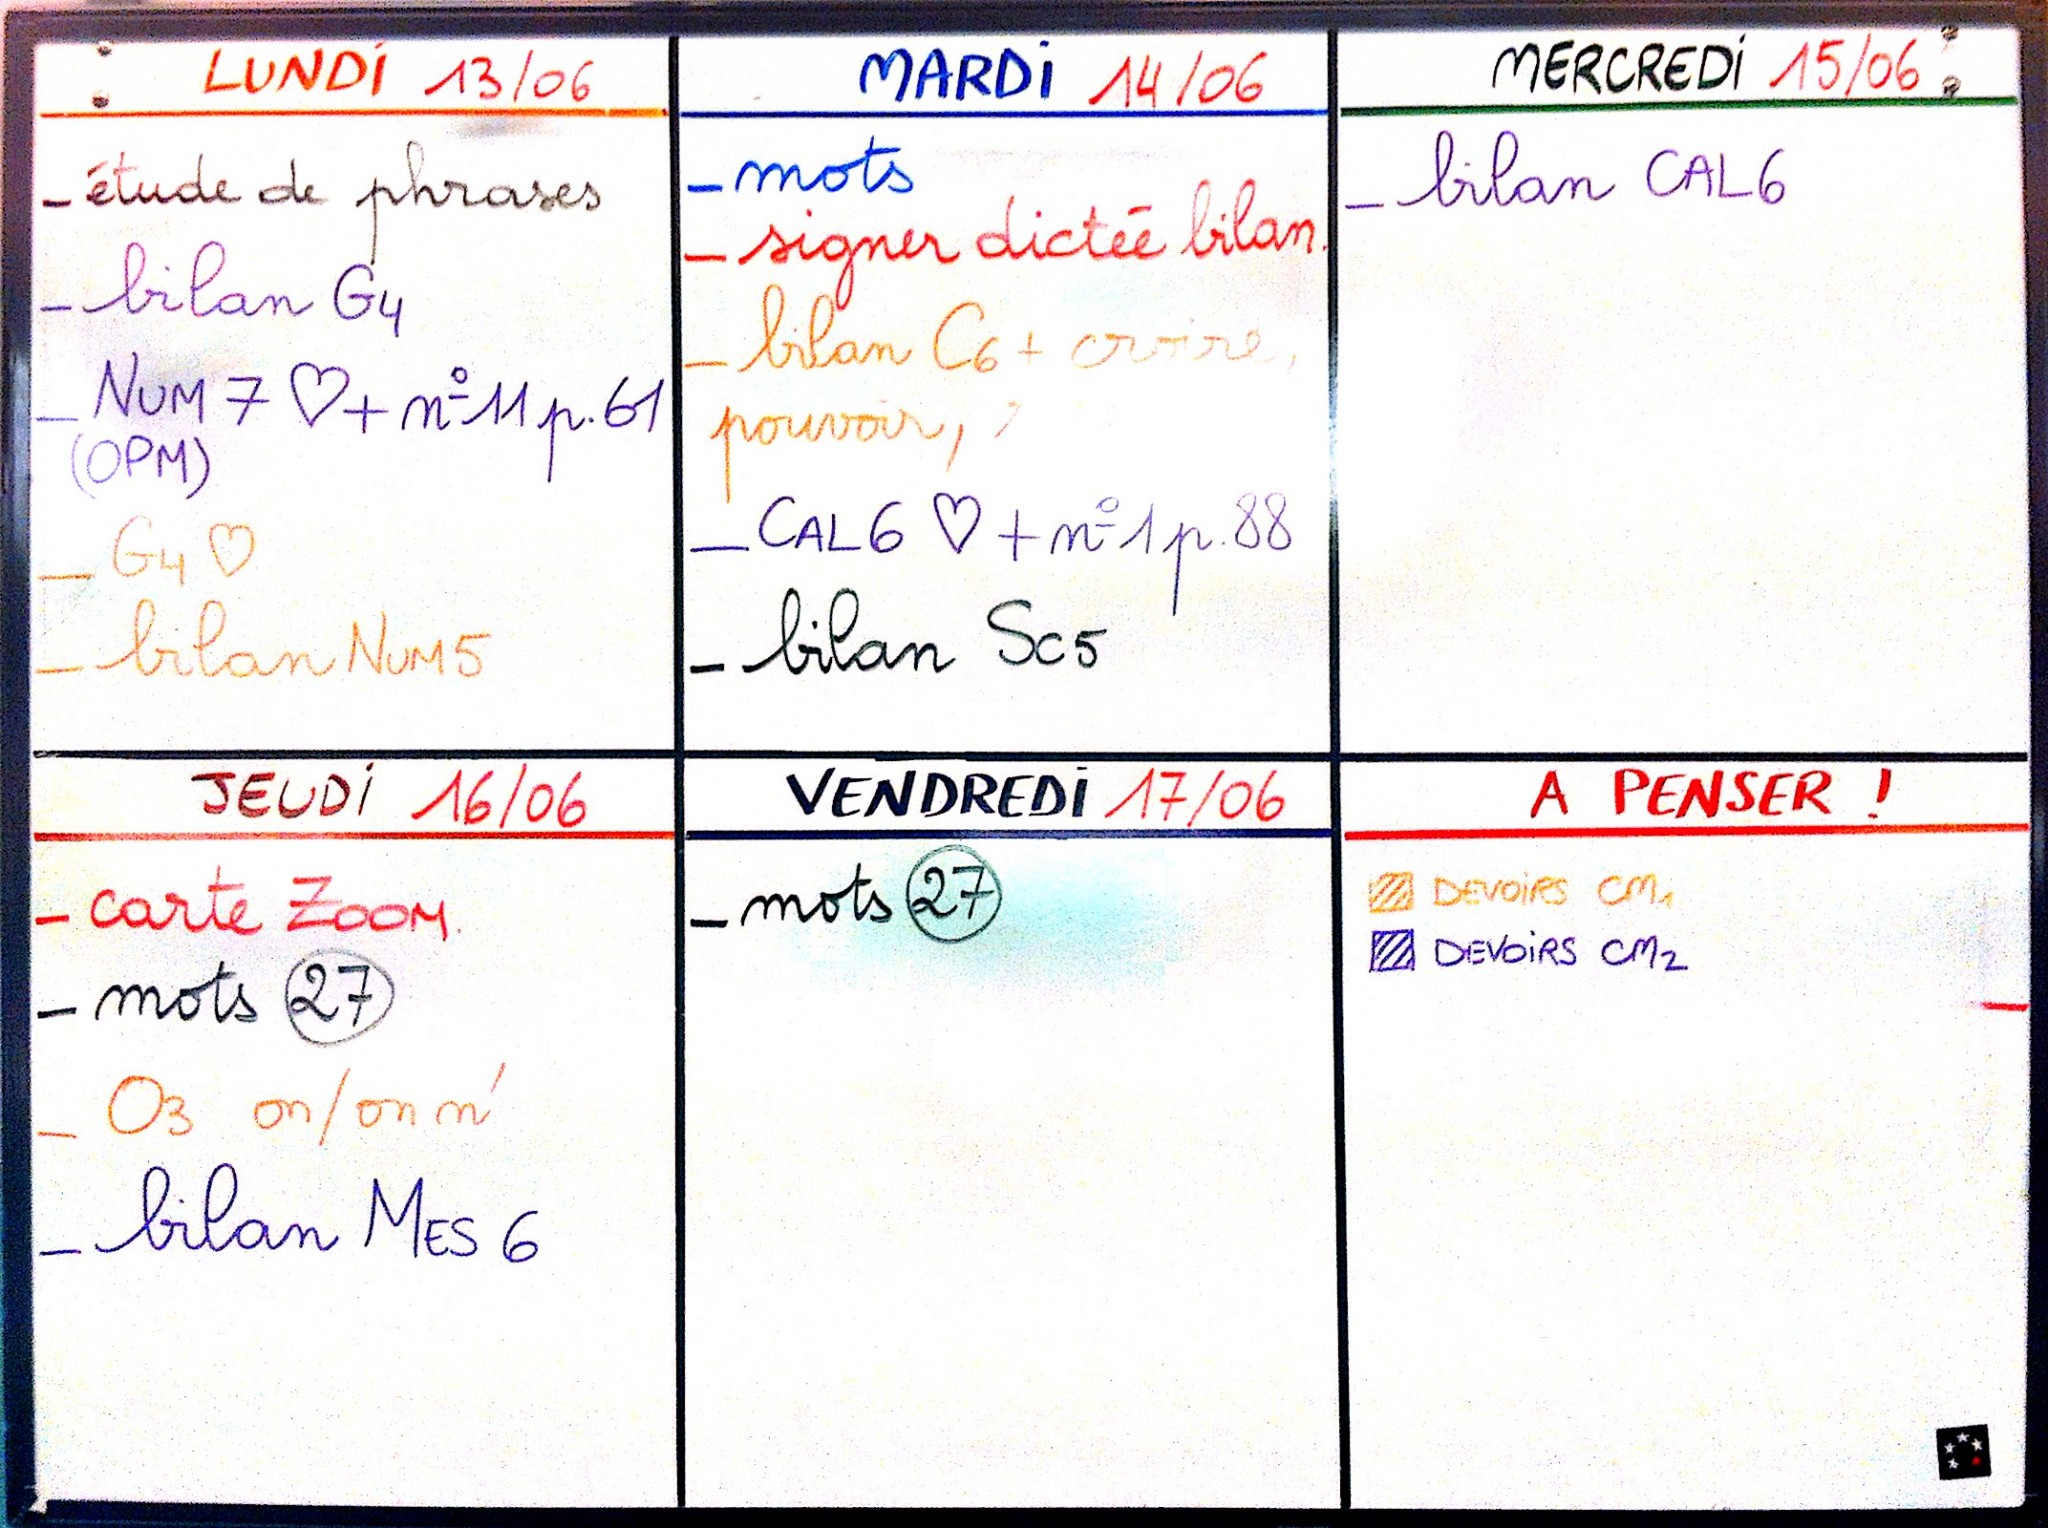 LUNDI 13/06
- étude de phrases
- bilan G4
- NUM 7 ♡ + n°11 p.61
(OPM)
- G4 ♡
- bilan NUM5
MARDI 14/06
- mots
- signer dictée bilan.
- bilan C6 + croire,
pouvoir,
- CAL6 ♡ + n°1 p.88
- bilan Sc5
MERCREDI 15/06
- bilan CAL6
JEUDI 16/06
- carte ZOOM.
- mots 27
- O3 on/on n'
- bilan MES 6
VENDREDI 17/06
- mots 27
A PENSER !
DEVOIRS CM1
DEVOIRS CM2